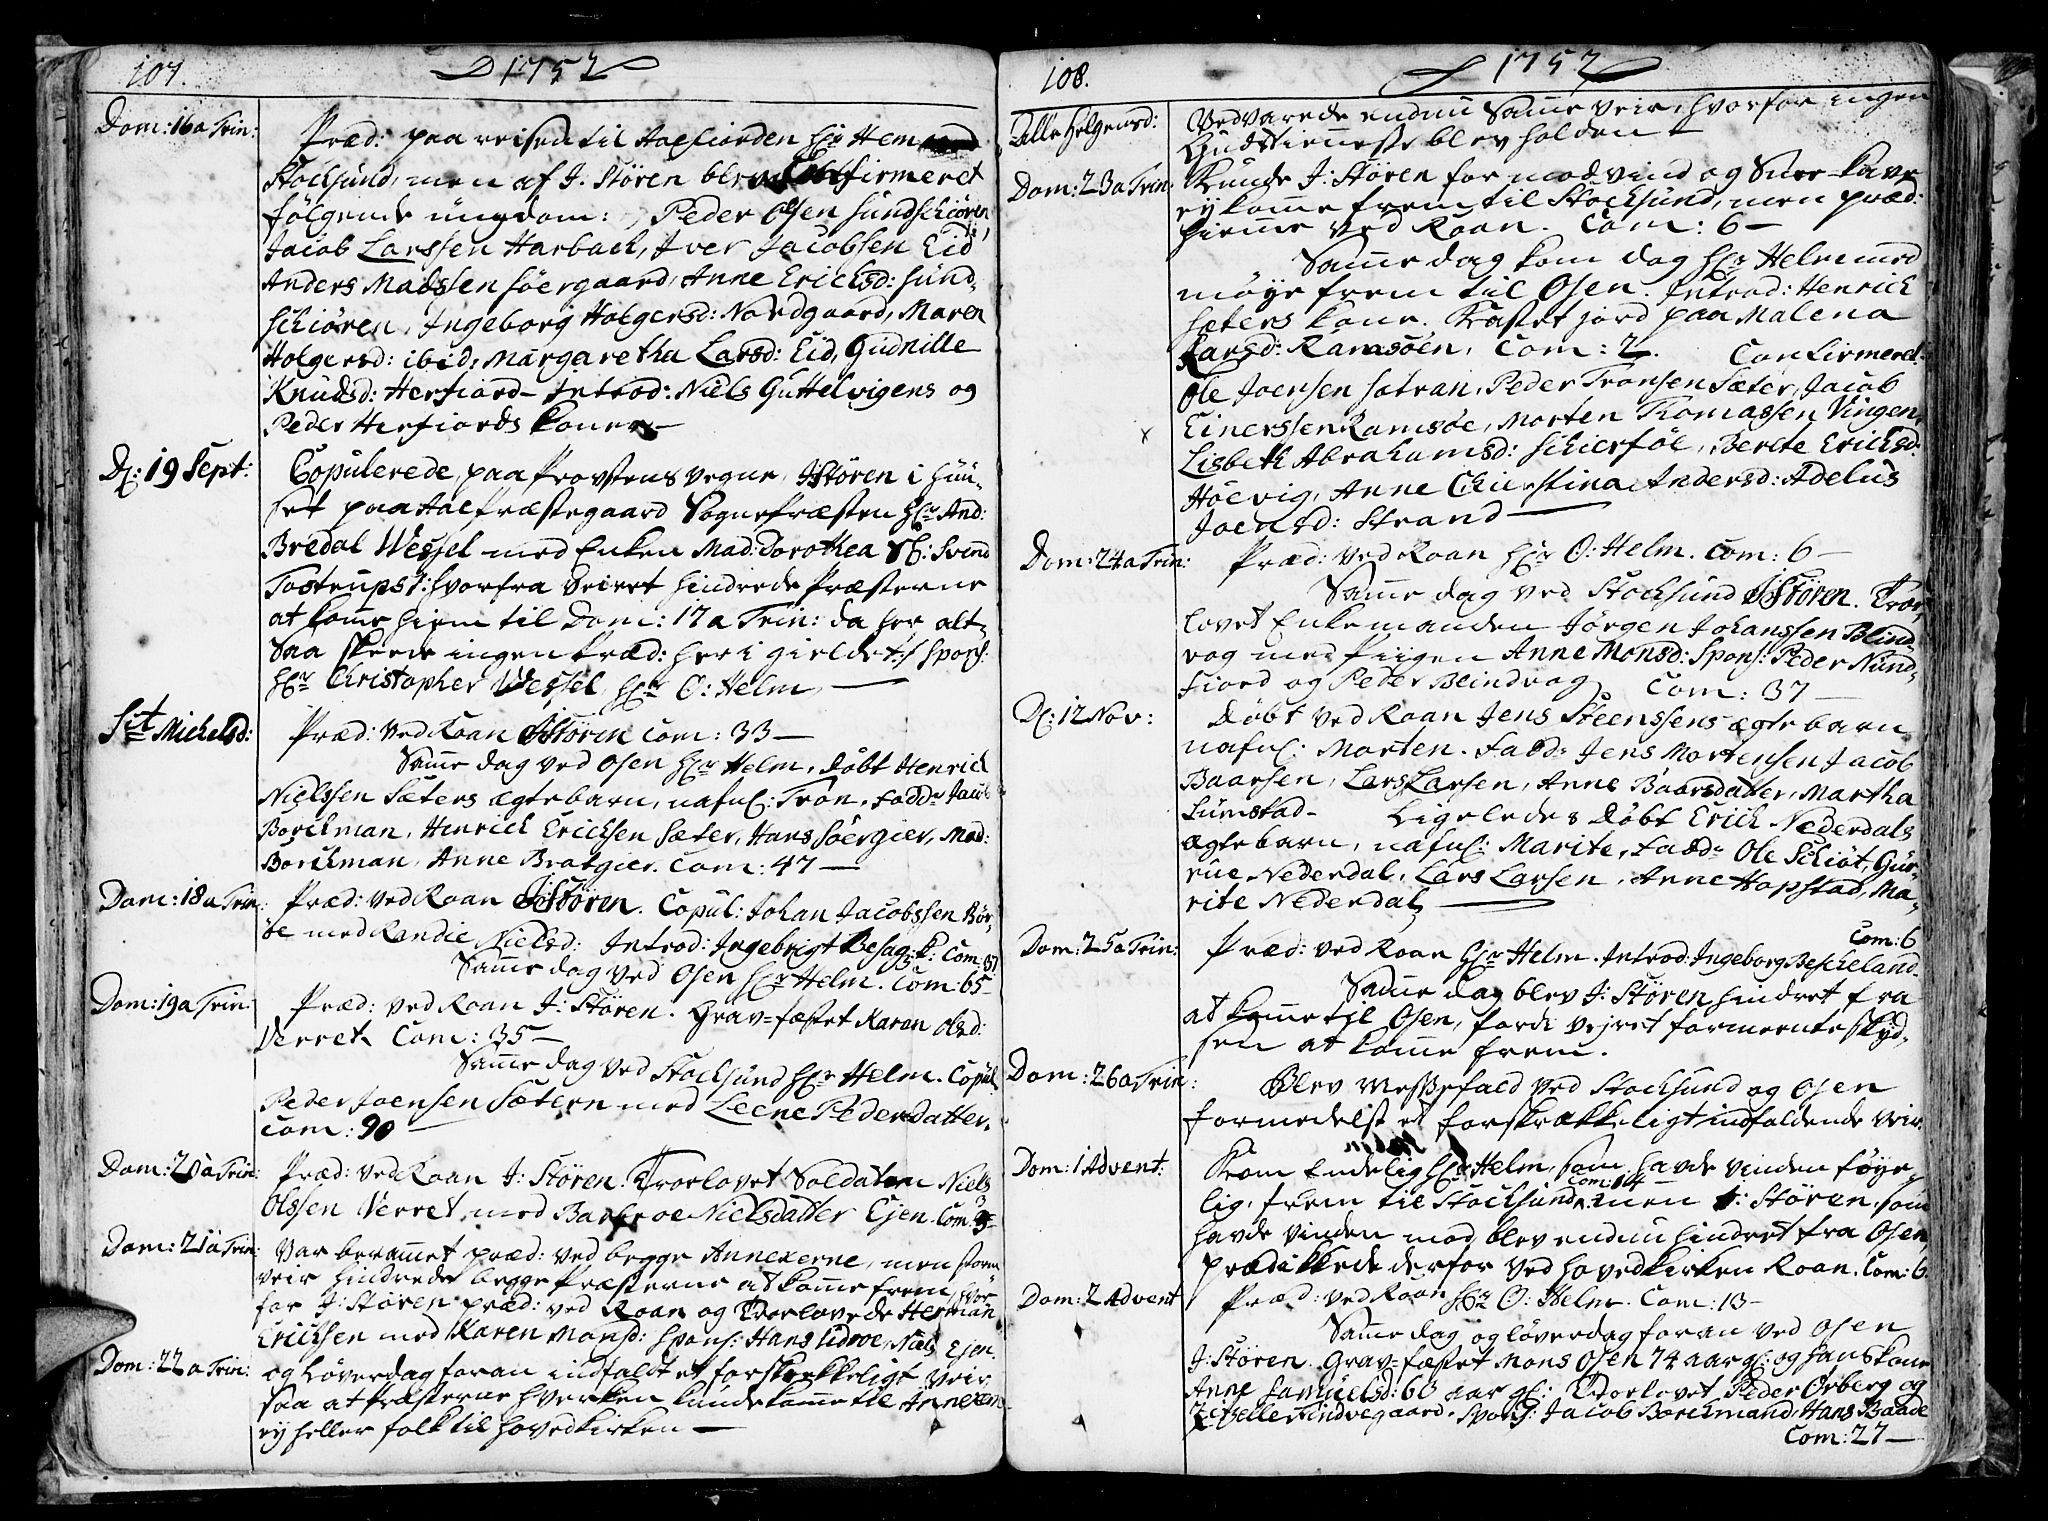 107.
1752
Dom: 16 a Trin:
Præd: paa reisen til Aaefiorden Hr: Hem
Stocksund, men af J. Stören blev Confirmeret
følgende ungdom: Peder Olsen Sundschiören,
Jacob Larssen Harbach, Iver Jacobsen Eid
Anders Madssen Söergaard, Anne Ericksd: Sund-
schiören, Ingeborg Holgersd: Nordgaard, Maren
Holgersd: ibid, Margaretha Larsd: Eid, Gudnille
Knudsd: Herfiord - Introd: Niels Guttelvigens og
Peder Herfiords koner -
D: 19 Sept:
Copulerede, paa Provstens vegne, J Stören i Huu-
set paa Aae Præstegaard Sogne Præsten Hr: And:
Bredal Wessel med Enken Mad: Dorothea Sl: Svend
Tostrups /: hvorfra veiret hindrede Præsterne
at komme hiem til Dom: 17 a Trin: da her alt-
saa skeede ingen Præd: her i gieldet :/ Spons:
Hr: Christopher Wessel, Hr: O: Helm,
Sct Michelsd:
Præd: ved Roan J Stören Com: 33 -
Samme dag ved Osen Hr: Helm, döbt Henrick
Nielssen Sæters ægtebarn, nafnl: Tron, Fadd: Jacob
Borckman, Henrich Ericksen Sæter, Hans Söergier, Mad:
Borckman, Anne Bratgier. Com: 47 -
Dom: 18 a Trin:
Præd: ved Roan J: Stören. Copul: Johan Jacobssen Bör-
öe med Randie Nielsd: Introd: Ingebrigt Besag: k: Com: 37
Samme dag ved Osen Hr: Helm. Com: 65 -
Dom: 19 a Trin:
Præd: ved Roan J: Stören. Grav-fæstet Karan Olsd:
Verret. Com: 35 -
Samme dag ved Stocksund Hr: Helm. Copul:
Peder Joensen Sætern med Leene Pedersdatter.
Com: 90
Dom: 20 a Trin:
Præd: ved Roan J: Stören. Troelovet Soldaten Niels
Olssen Verret med Barbroe Nielsdatter Ejen. Com:
Dom: 21 a Trin:
Var berammet præd: ved begge Annexerne, men storm
veir hindrede begge Præsterne at komme frem, hvor
for J: Stören præd: ved Roan og Troelovede Herman
Ericksen med Karen Monsd: Spons: Hans Udroe, Niels Ejen.
Dom: 22 a Trin:
og Löverdag foran indfaldt et forskrekkeligt veir
saa at Præsterne hverken kunde komme til Annexerne
ey heller folk til hovedkirken -
108.
1752
Alle Helgensd:
Vedvarede endnu Samme veir, hvorfor ingen
Gudstienneste blev holden
Dom: 23 a Trin:
Kunde J: Stören for modvind og Snee-kave
ey komme frem til Stocksund, men præd:
hiemme ved Roan. Com: 6 -
Samme dag kom dag Hr: Helm med
möye frem til Osen. Introd: Henrich
Sæters kone. Kastet jord paa Malena
Larsd: Ramsöen, Com: 2. Confirmeret:
Ole Joensen Satran, Peder Tronsen Sæter, Jacob
Einerssen Ramsöe, Morten Thomassen Vingen,
Lisbeth Abrahamsd: Schierföe, Berete Ericksd:
Höevig, Anne Christina Andersd: Adelus
Joensd: Strand
Dom: 24 a Trin:
Præd: ved Roan Hr: O: Helm. Com: 6 -
Samme dag ved Stocksund J: Stören. Troe-
lovet Enkemanden Jörgen Johanssen Blind
vog med Piigen Anne Monsd: Spons: Peder Nund-
Fiord og Peder Blindvog Com: 37 -
D: 12 Nov:
Döbt ved Roan Jens Steenssens ægte barn
nafnl: Morten. Fadd: Jens Mortensen Jacob
Baarsen, Lars Larsen, Anne Baarsdatter, Martha
Sumstad - Ligeledes döbt Erich Nederdals
ægtebarn, nafnl: Marite, Fadd: Ole Schiöt, Gur-
rue Nederdal, Lars Larsen, Anne Hopstad, Ma-
rite Nederdal
Com: 6
Dom: 25 a Trin:
Præd: ved Roan Hr: Helm. Introd: Ingeborg Bescheland.
Samme dag blev J: Stören hindret fra
at komme til Osen, fordi vejret formeente Skyd-
sen at komme frem.
Dom: 26 a Trin:
Blev Messefald ved Stocksund og Osen
formedelst et forskrækkeligt indfaldende veir.
Dom: 1 Advent:
Kom Endelig Hr: Helm, som havde vinden föye-
Com: 14
lig, frem til Stocksund, men J: Stören, som
havde vinden mod, blev endnu hindret fra Osen,
prædikkede derfor ved hovedkirken Roan. Com: 6
Dom: 2 Advent
Præd: ved Roan Hr: O: Helm. Com: 13 -
Samme dag og löverdag foran ved Osen
J: Stören. Grav-fæstet Mons Osen 74 aar gl: og hans kone
Anne Samuelsd: 60 aar gl: Troelovet Peder Orberg og
Zitzelle Tindvegaard. Spons: Jacob Borckmand, Hans Baade
Com: 27 -